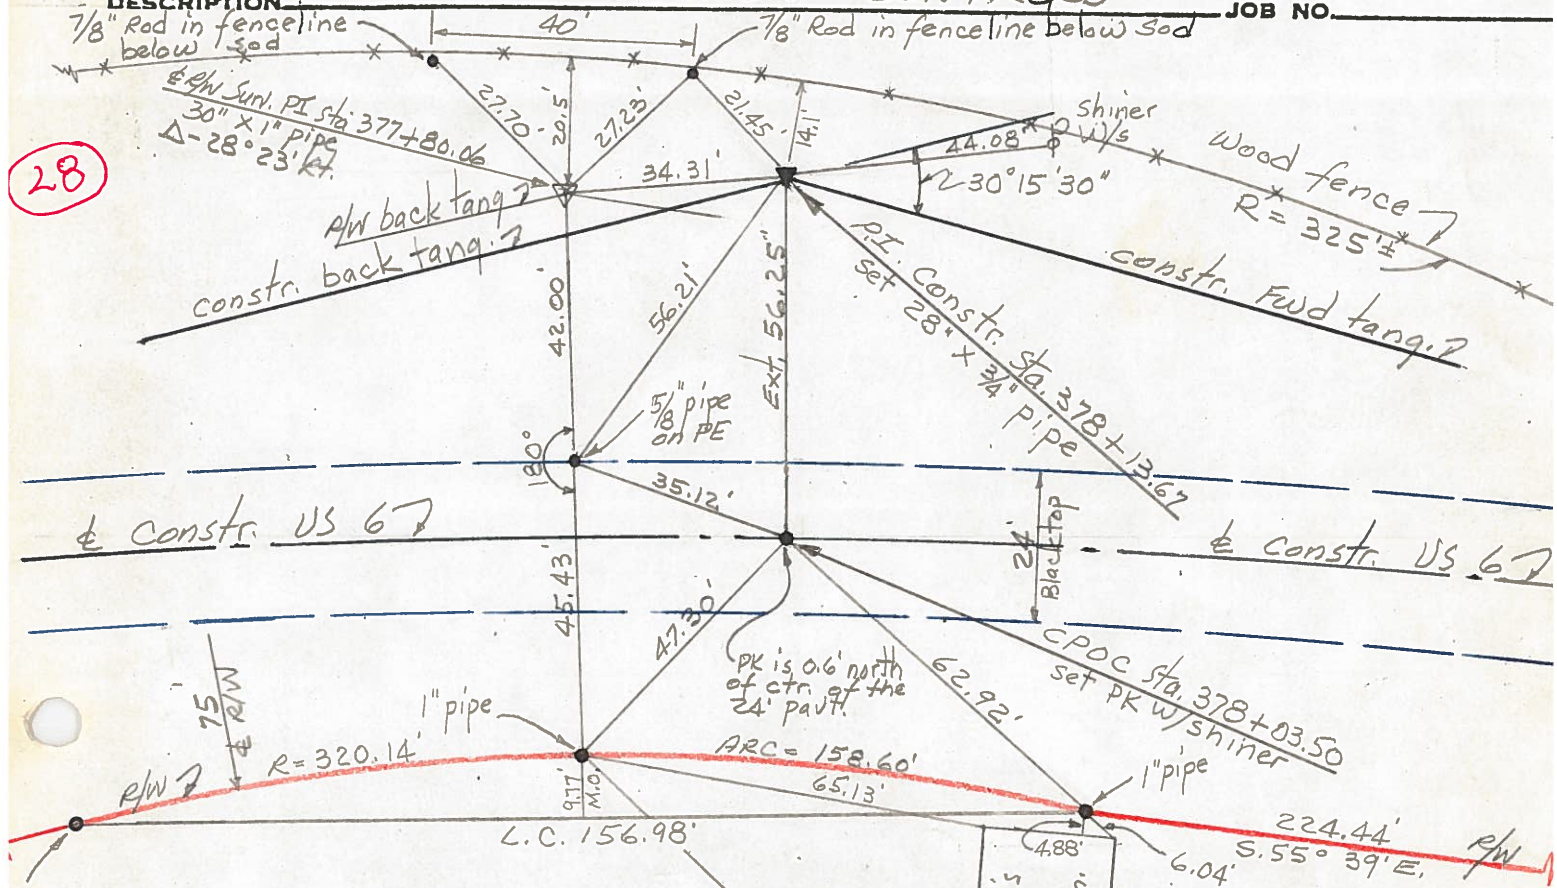 DESCRIPTION
JOB NO.
7/8" Rod in fenceline
below sod
40'
7/8" Rod in fenceline below sod
₵ R/W Surv. PI sta. 377+80.06
30" X 1" pipe
Δ-28°23' Rt.
27.70'
20.5'
27.23'
21.45'
14.1'
shiner
W/s
44.08'
30°15'30"
Wood fence
R = 325'±
28
34.31'
R/W back tang
constr. back tang.
P.I. Constr. sta. 378+13.67
set 28" X 3/4" pipe
constr. Fwd tang.
42.00'
56.21'
Ext. 56.25'
5/8" pipe
on PE
180°
35.12'
₵ Constr. US 6
₵ Constr. US 6
24'
Blacktop
45.43'
47.30'
PK is 0.6' north
of ctr. of the
24' pavt.
62.92'
CPOC sta. 378+03.50
set PK w/shiner
75'
₵ R/W
1" pipe
R= 320.14'
ARC= 158.60'
65.13'
1" pipe
R/W
9.77'
M.O.
L.C. 156.98'
4.88'
6.04'
224.44'
S.55° 39' E.
R/W